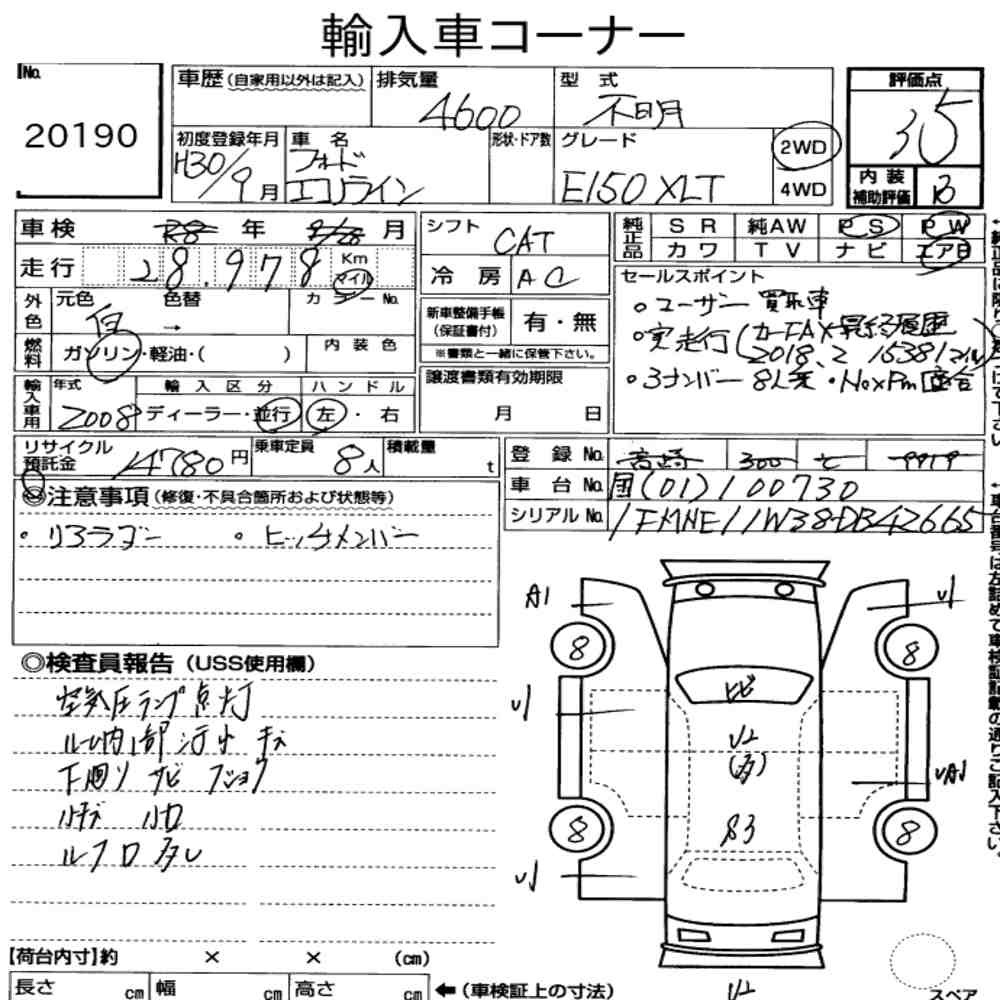 輸入車コーナー
No. 20190
車歴（自家用以外は記入） 排気量 4600 型式 不明 評価点 3.5
初度登録年月 H30/9月 車名 フォード エコノライン 形状・ドア数 グレード E150 XLT 2WD 4WD
内装補助評価 B
車検 R8年 8/28月 シフト CAT 純正品 SR 純AW PS PW
カワ TV ナビ エアB
走行 28.978 Km マイル 冷房 AC セールスポイント
外色 元色 白 色替 → カラーNo. 新車整備手帳（保証書付） 有・無
・ユーザー買取車
燃料 ガソリン・軽油・（　） 内装色 ※書類と一緒に保管下さい。
・実走行（カーFAX最終履歴
2018.2 15381マイル）
・3ナンバー 8人乗 ・NoxPm適合
輸入車用 年式 2008 輸入区分 ディーラー・並行 ハンドル 左・右 譲渡書類有効期限 月 日
リサイクル預託金 14780円 乗車定員 8人 積載量 t 登録No. 高崎 300 せ 9919
車台No. 国(01)100730
シリアルNo. 1FMNE11W38DB42665
◎注意事項（修復・不具合箇所および状態等）
・リアラダー ・ヒッチメンバー
◎検査員報告（USS使用欄）
空気圧ランプ点灯
ルーム内部汚れ キズ
下廻り サビ フショク
小キズ 小凹
A1 U1
8 8
U1 ヒビ U2 (多) UA1
8 S3 8
U1
U2
スペア
【荷台内寸】約 × × (cm)
長さ cm 幅 cm 高さ cm ←（車検証上の寸法）
車台番号は左詰めで車検証記載の通りご記入下さい。